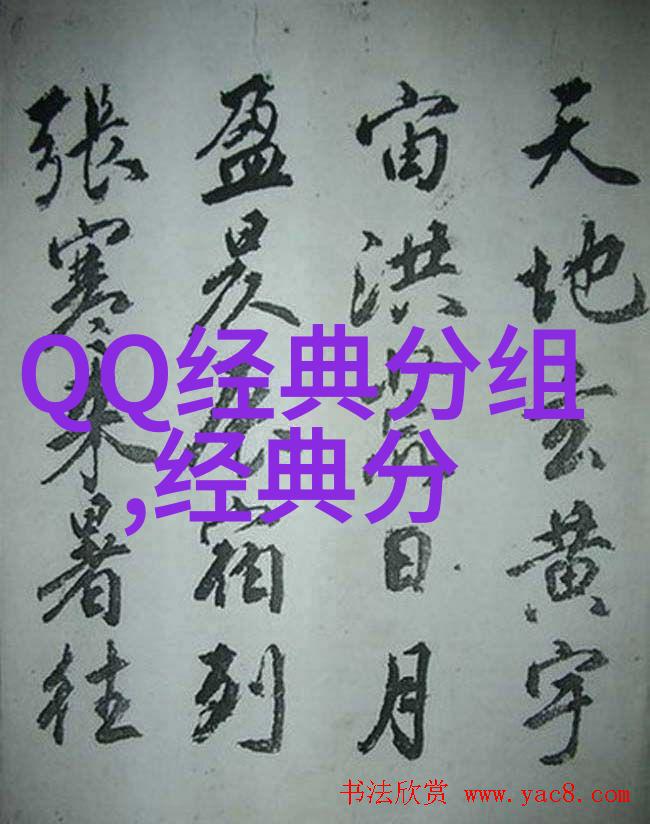 天地玄黄宇
宙洪荒日月
盈昃辰宿列
張寒来暑往
QQ经典分组
,经典分
书法欣赏 www.yac8.com